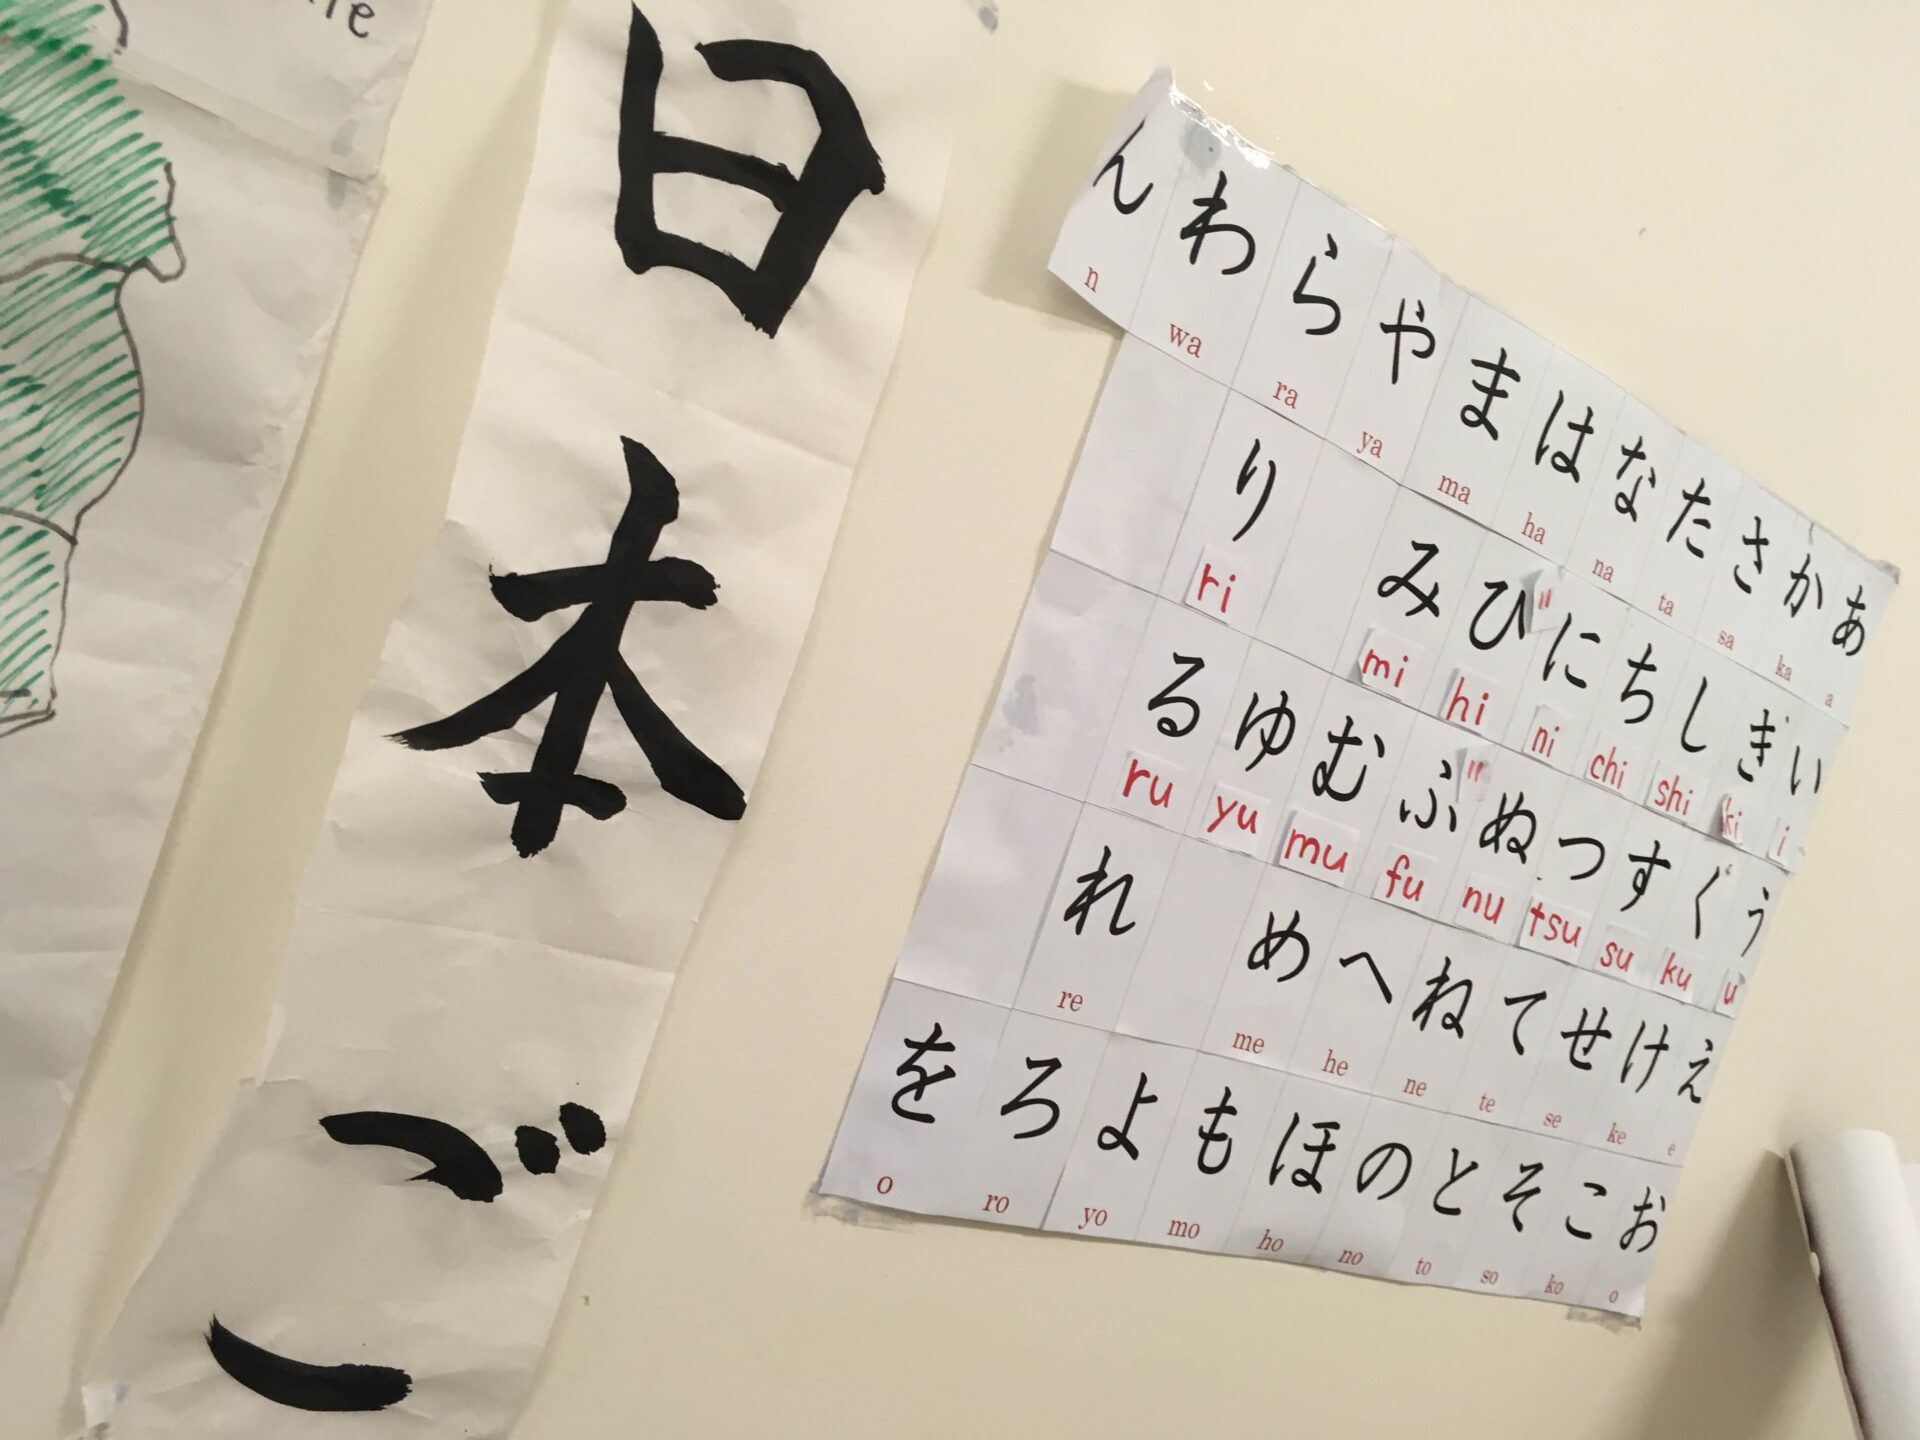 日本ご
ん わ ら や ま は な た さ か あ
n wa ra ya ma ha na ta sa ka a
り み び に ち し ぎ い
ri mi hi ni chi shi ki i
る ゆ む ぶ ぬ つ す ぐ う
ru yu mu fu nu tsu su ku u
れ め へ ね て せ け え
re me he ne te se ke e
を ろ よ も ほ の と そ こ お
o ro yo mo ho no to so ko o